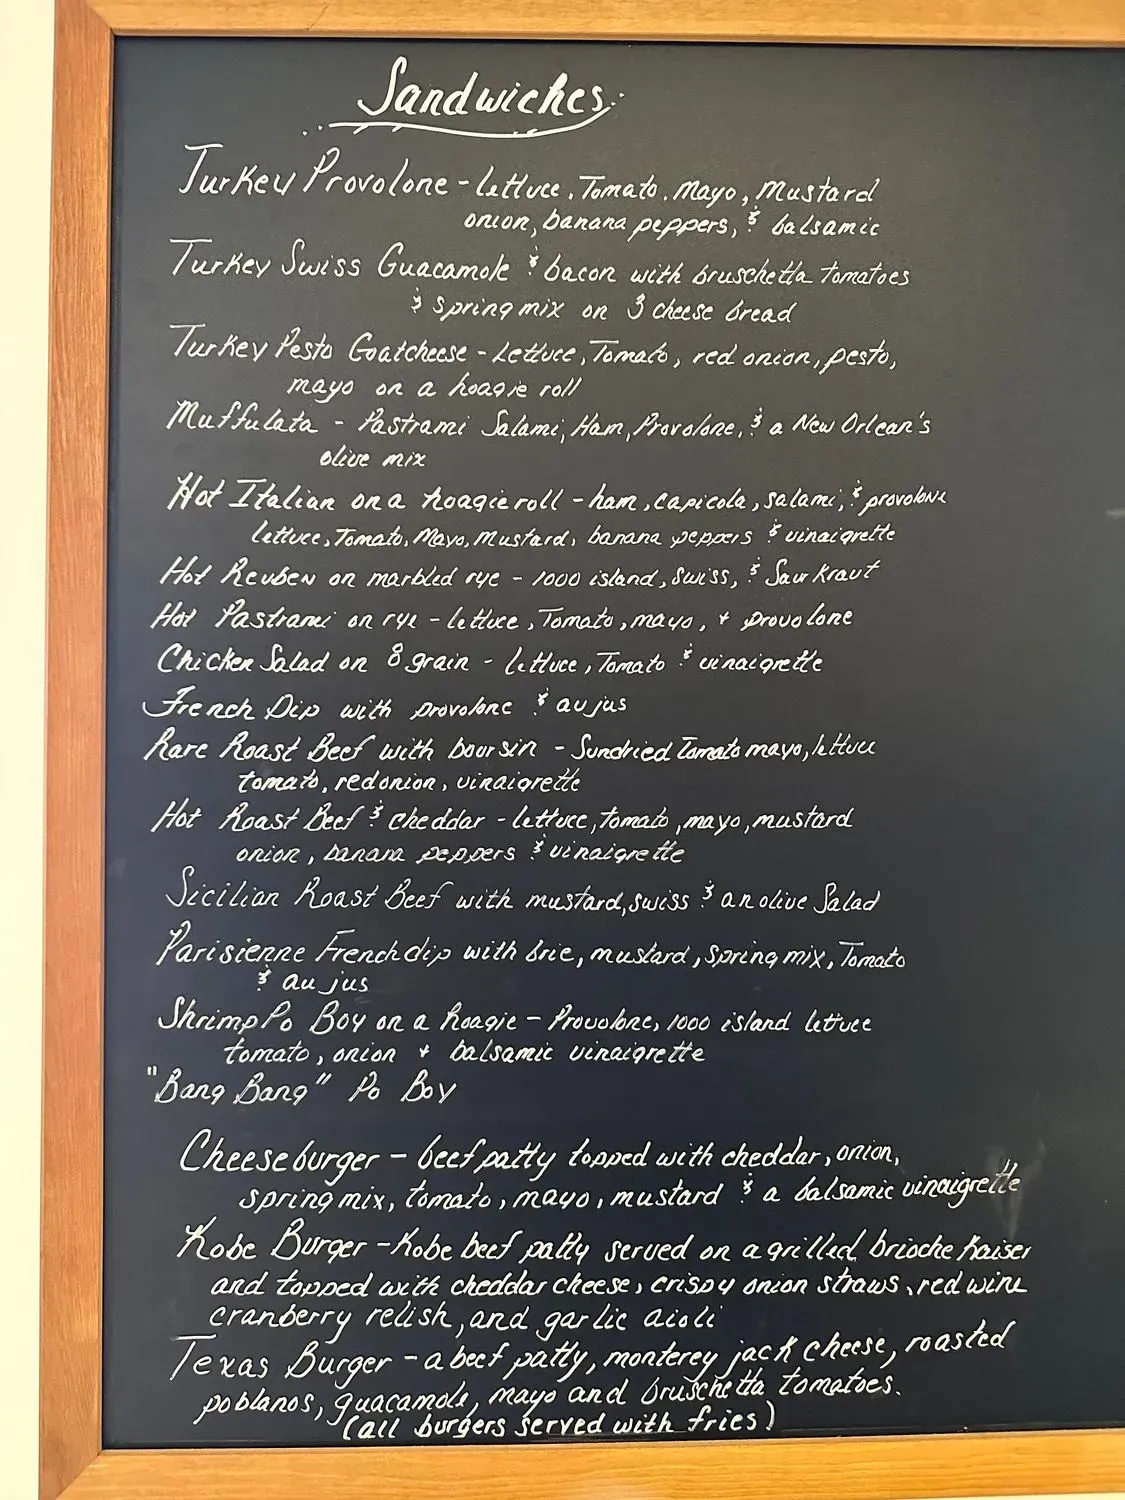 Sandwiches
Turkey Provolone - lettuce, Tomato, Mayo, Mustard
onion, banana peppers, & balsamic
Turkey Swiss Guacamole & bacon with bruschetta tomatoes
& spring mix on 3 cheese bread
Turkey Pesto Goatcheese - Lettuce, Tomato, red onion, pesto,
mayo on a hoagie roll
Muffulata - Pastrami Salami, Ham, Provolone, & a New Orlean's
olive mix
Hot Italian on a hoagie roll - ham, capicola, salami, & provolone
lettuce, Tomato, Mayo, Mustard, banana peppers & vinaigrette
Hot Reuben on marbled rye - 1000 island, Swiss, & Saurkraut
Hot Pastrami on rye - lettuce, Tomato, mayo, + provolone
Chicken Salad on 8 grain - lettuce, Tomato & vinaigrette
French Dip with provolone & au jus
Rare Roast Beef with boursin - Sundried Tomato mayo, lettuce
tomato, red onion, vinaigrette
Hot Roast Beef & cheddar - lettuce, tomato, mayo, mustard
onion, banana peppers & vinaigrette
Sicilian Roast Beef with mustard, swiss & an olive Salad
Parisienne French dip with brie, mustard, spring mix, Tomato
& au jus
Shrimp Po Boy on a hoagie - Provolone, 1000 island lettuce
tomato, onion + balsamic vinaigrette
"Bang Bang" Po Boy
Cheeseburger - beef patty topped with cheddar, onion,
spring mix, tomato, mayo, mustard & a balsamic vinaigrette
Kobe Burger - Kobe beef patty served on a grilled brioche Kaiser
and topped with cheddar cheese, crispy onion straws, red wine
cranberry relish, and garlic aioli
Texas Burger - a beef patty, monterey jack cheese, roasted
poblanos, guacamole, mayo and bruschetta tomatoes.
(all burgers served with fries)